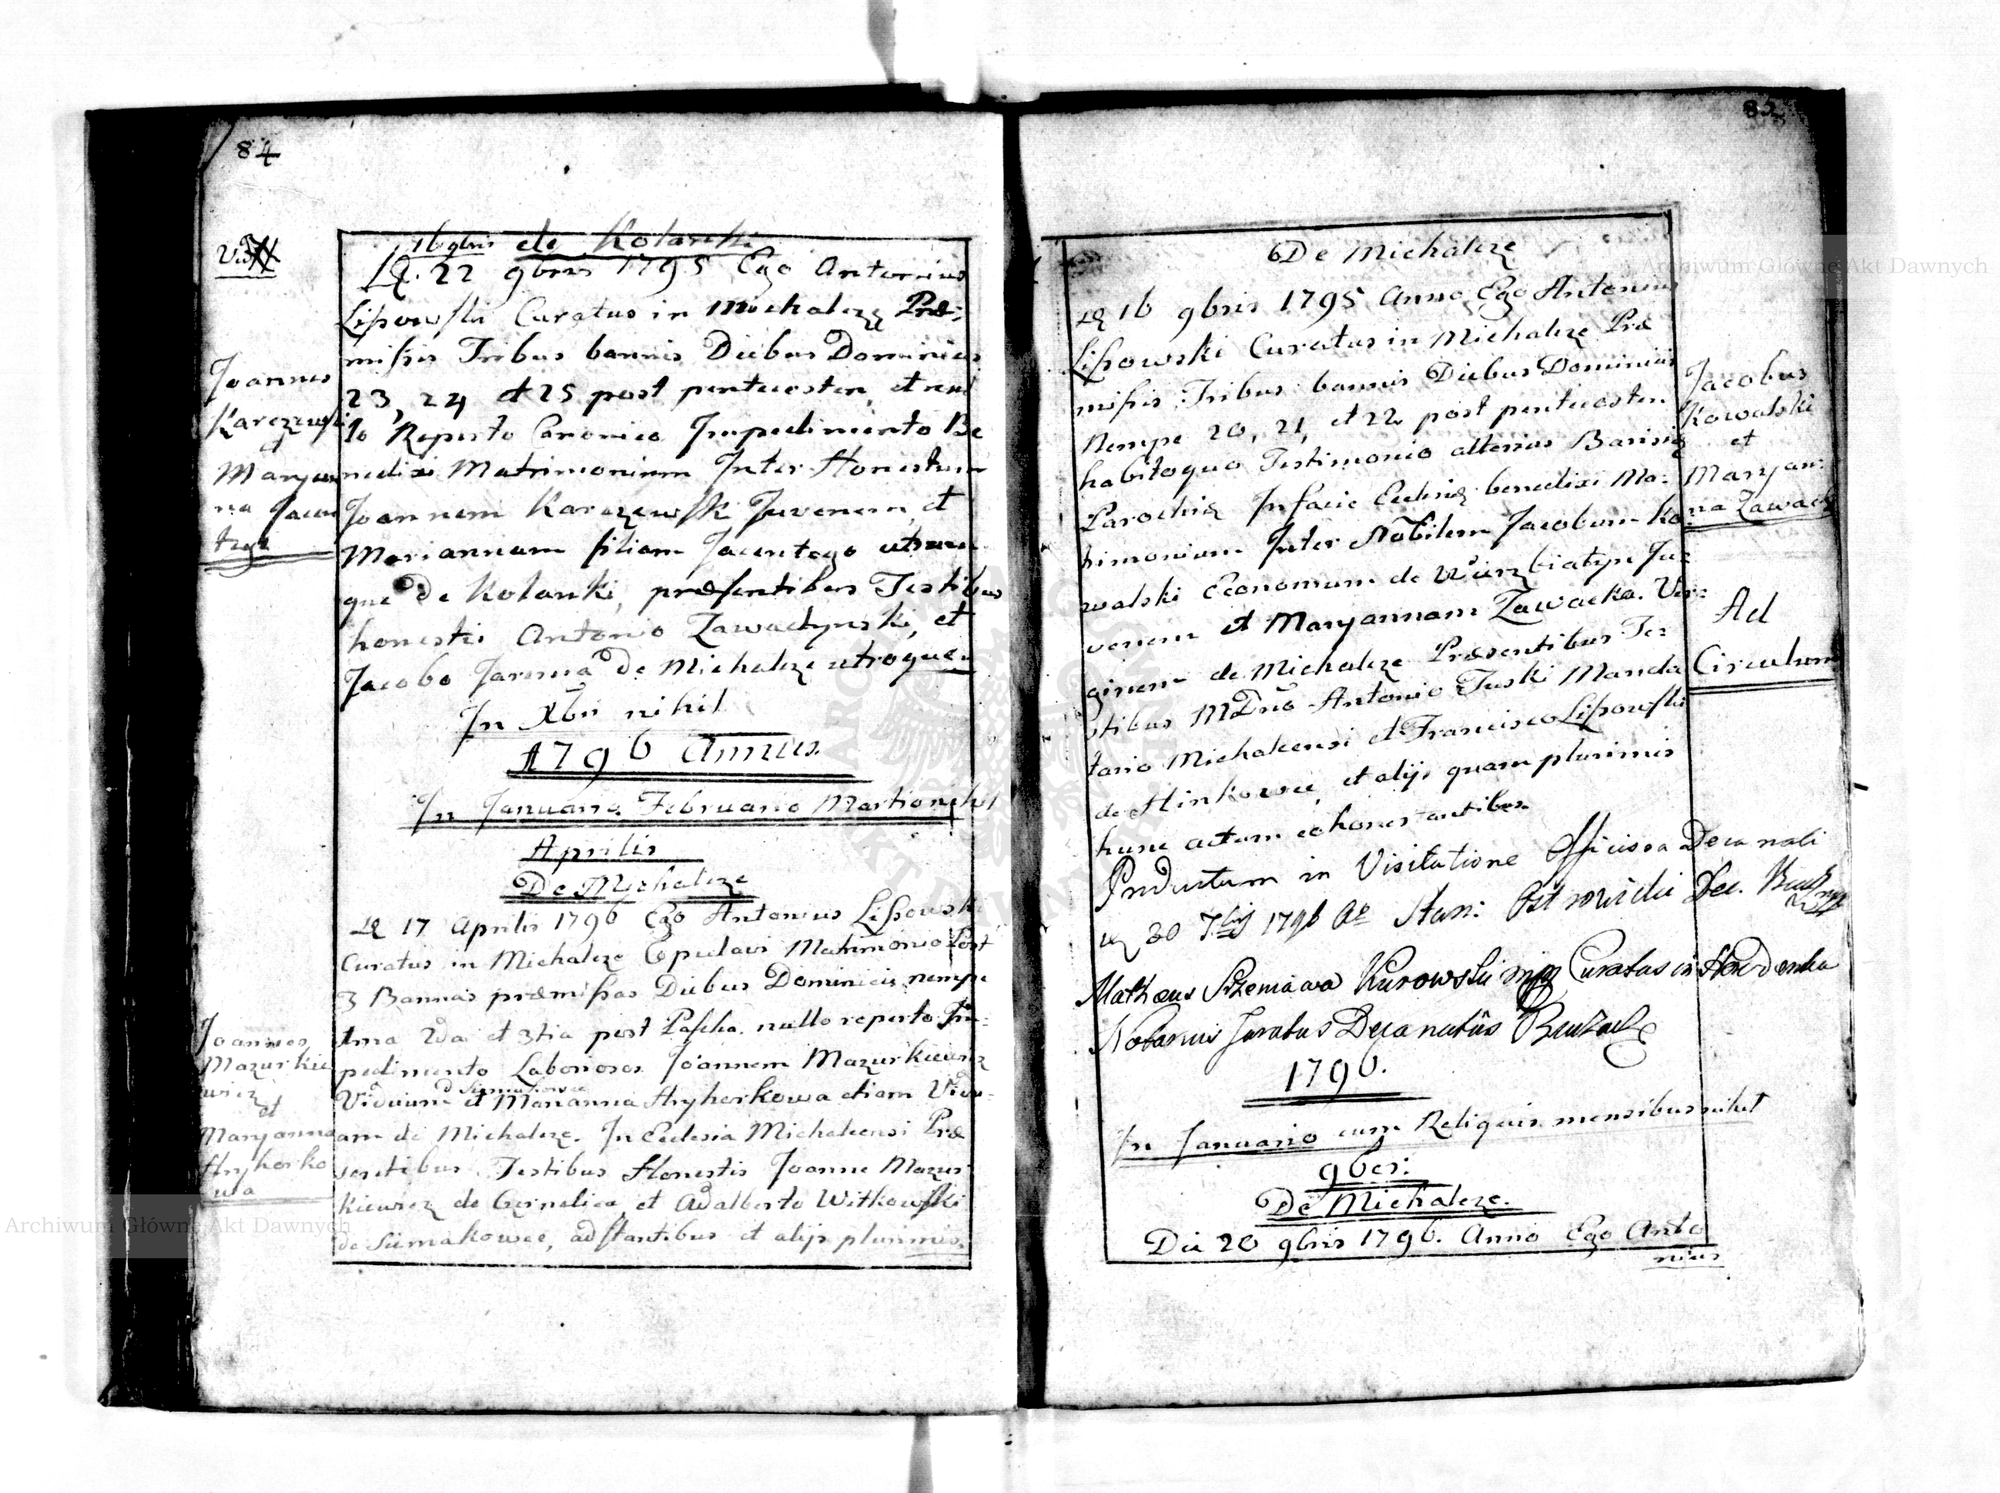 84
16 9bris de Kolanki
D. 22 9bris 1795 Ego Antonius
Lipowski Curatus in Michalcze Præ-
missis Tribus bannis Diebus Dominicis
23, 24 et 25 post pentecosten, et nul
lo Reperto Canonico Impedimento Be
nedixi Matrimonium Inter Honestum
Joannem Karczewski Juvenem, et
Mariannam filiam Jacentego utrum
que de Kolanki, præsentibus Testibus
honestis Antonio Zawadynski, et
Jacobo Jarema de Michalcze utroque
In Xbri nihil
1796 Annus.
In Januario Februario Martio nihil
Aprilis
De Michalcze
D 17 Aprilis 1796 Ego Antonius Lipowski
Curatus in Michalcze Copulavi Matrimonio Post
3 Bannas præmissas Diebus Dominicis nempe
1ma 2da et 3tia post Pascha nullo reperto Im-
pedimento Laboriosos Joannem Mazurkiewicz
d Siemakowce
Viduum et Marianna Hryhorkowa etiam Vidu-
am de Michalcze. In Ecclesia Michalcensi Præ
sentibus Testibus Honestis Joanne Mazur
kiewicz de Czernelica et Adalberto Witkowski
de Siemakowce, adstantibus et alijs plurimis.
Joannes
Karczewski
et
Maryan
na Jacen
tego
Joannes
Mazurkie
wicz
et
Maryanna
Hryhorko
wa
82
De Michalcze
D 16 9bris 1795 Anno Ego Antonius
Lipowski Curatus in Michalcze Præ
missis Tribus bannis Diebus Dominicis
Nempe 20, 21, et 22 post pentecosten
habitoque Testimonio alterius
Parochiæ In facie Ecclesiæ benedixi Ma-
trimonium Inter Nobilem Jacobum Ko-
walski Economum de Ju-
venem et Maryannam Zawacka. Vir-
ginem de Michalcze Præsentibus Te-
stibus MDno Antonio Tuski Manda
tario Michalcensi et Francisco Lipowski
de Hinkowce, et alijs quam plurimis
hunc actum cohonestantibus
Productum in Visitatione Officiosa Decanali
D 30 7bris 1796 Ao Stan:
Mathæus Kurowski mpp Curatus in Horodenka
Notarius Juratus Decanatus
1796.
In Januario cum Reliquis mensibus nihil
9bri:
De Michalcze.
Die 20 9bris 1796. Anno Ego Anto
nius
Jacobus
Kowalski
et
Maryan-
na Zawack
Ad
Circulum
Archiwum Główne Akt Dawnych
Archiwum Główne Akt Dawnych